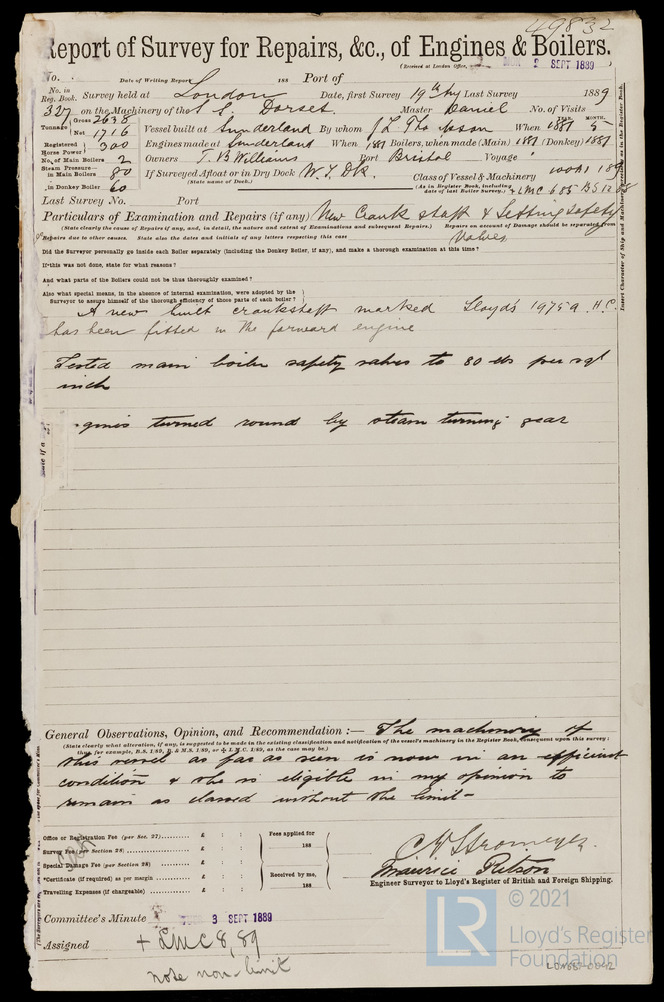 49832
Report of Survey for Repairs, &c., of Engines & Boilers.
(Received at London Office, 2 SEPT 1889
No. Date of Writing Report 188 Port of
No. in Reg. Book. Survey held at London Date, first Survey 19th Last Survey 1889
327 on the Machinery of the S.S. Dorset. Master Daniel No. of Visits
Tonnage Gross 2638
Net 1716 Vessel built at Sunderland By whom J L Thompson When YEAR. 1881 MONTH. 5
Registered Horse Power 300 Engines made at Sunderland When 1881 Boilers, when made (Main) 1881 (Donkey) 1881
No. of Main Boilers 2 Owners T. B Williams Port Bristol Voyage
Steam Pressure— in Main Boilers 80 If Surveyed Afloat or in Dry Dock W. I. Dk. Class of Vessel & Machinery 100A1
(State name of Dock.) (As in Register Book, including date of last Boiler Survey.) + LMC 6 85 BS 12 88
in Donkey Boiler 60
Last Survey No. Port
Particulars of Examination and Repairs (if any) New Crank shaft & Setting safety
(State clearly the cause of Repairs if any, and, in detail, the nature and extent of Examinations and subsequent Repairs.) Repairs on account of Damage should be separated from
Repairs due to other causes. State also the dates and initials of any letters respecting this case valves
Did the Surveyor personally go inside each Boiler separately (including the Donkey Boiler, if any), and make a thorough examination at this time?
If this was not done, state for what reasons?
And what parts of the Boilers could not be thus thoroughly examined?
Also what special means, in the absence of internal examination, were adopted by the
Surveyor to assure himself of the thorough efficiency of those parts of each boiler?
A new built crankshaft marked Lloyd's 1975a H.C.
has been fitted in the forward engine
Tested main boiler safety valves to 80 lbs per sqr
inch
gines turned round by steam turning gear
General Observations, Opinion, and Recommendation :— The machinery of
(State clearly what alteration, if any, is suggested to be made in the existing classification and notification of the vessel's machinery in the Register Book, consequent upon this survey:
thus for example, B.S. 1/89, B. & M.S. 1/89, or + L.M.C. 1/89, as the case may be.)
this vessel as far as seen is now in an efficient
condition & she is eligible in my opinion to
remain as classed without the limit-
Office or Registration Fee (per Sec. 27) £ : : Fees applied for
Survey Fee (per Section 28) £ : : 188
Special Damage Fee (per Section 28) £ : :
*Certificate (if required) as per margin £ : : Received by me,
Travelling Expenses (if chargeable) £ : : 188
C W Stromeyer.
Maurice Ritson
Engineer Surveyor to Lloyd's Register of British and Foreign Shipping.
Committee's Minute 3 SEPT 1889
Assigned + LMC 8,89
note non-limit
Insert Character of Ship and Machinery precisely as in the Register Book.
LR
© 2021
Lloyd's Register
Foundation